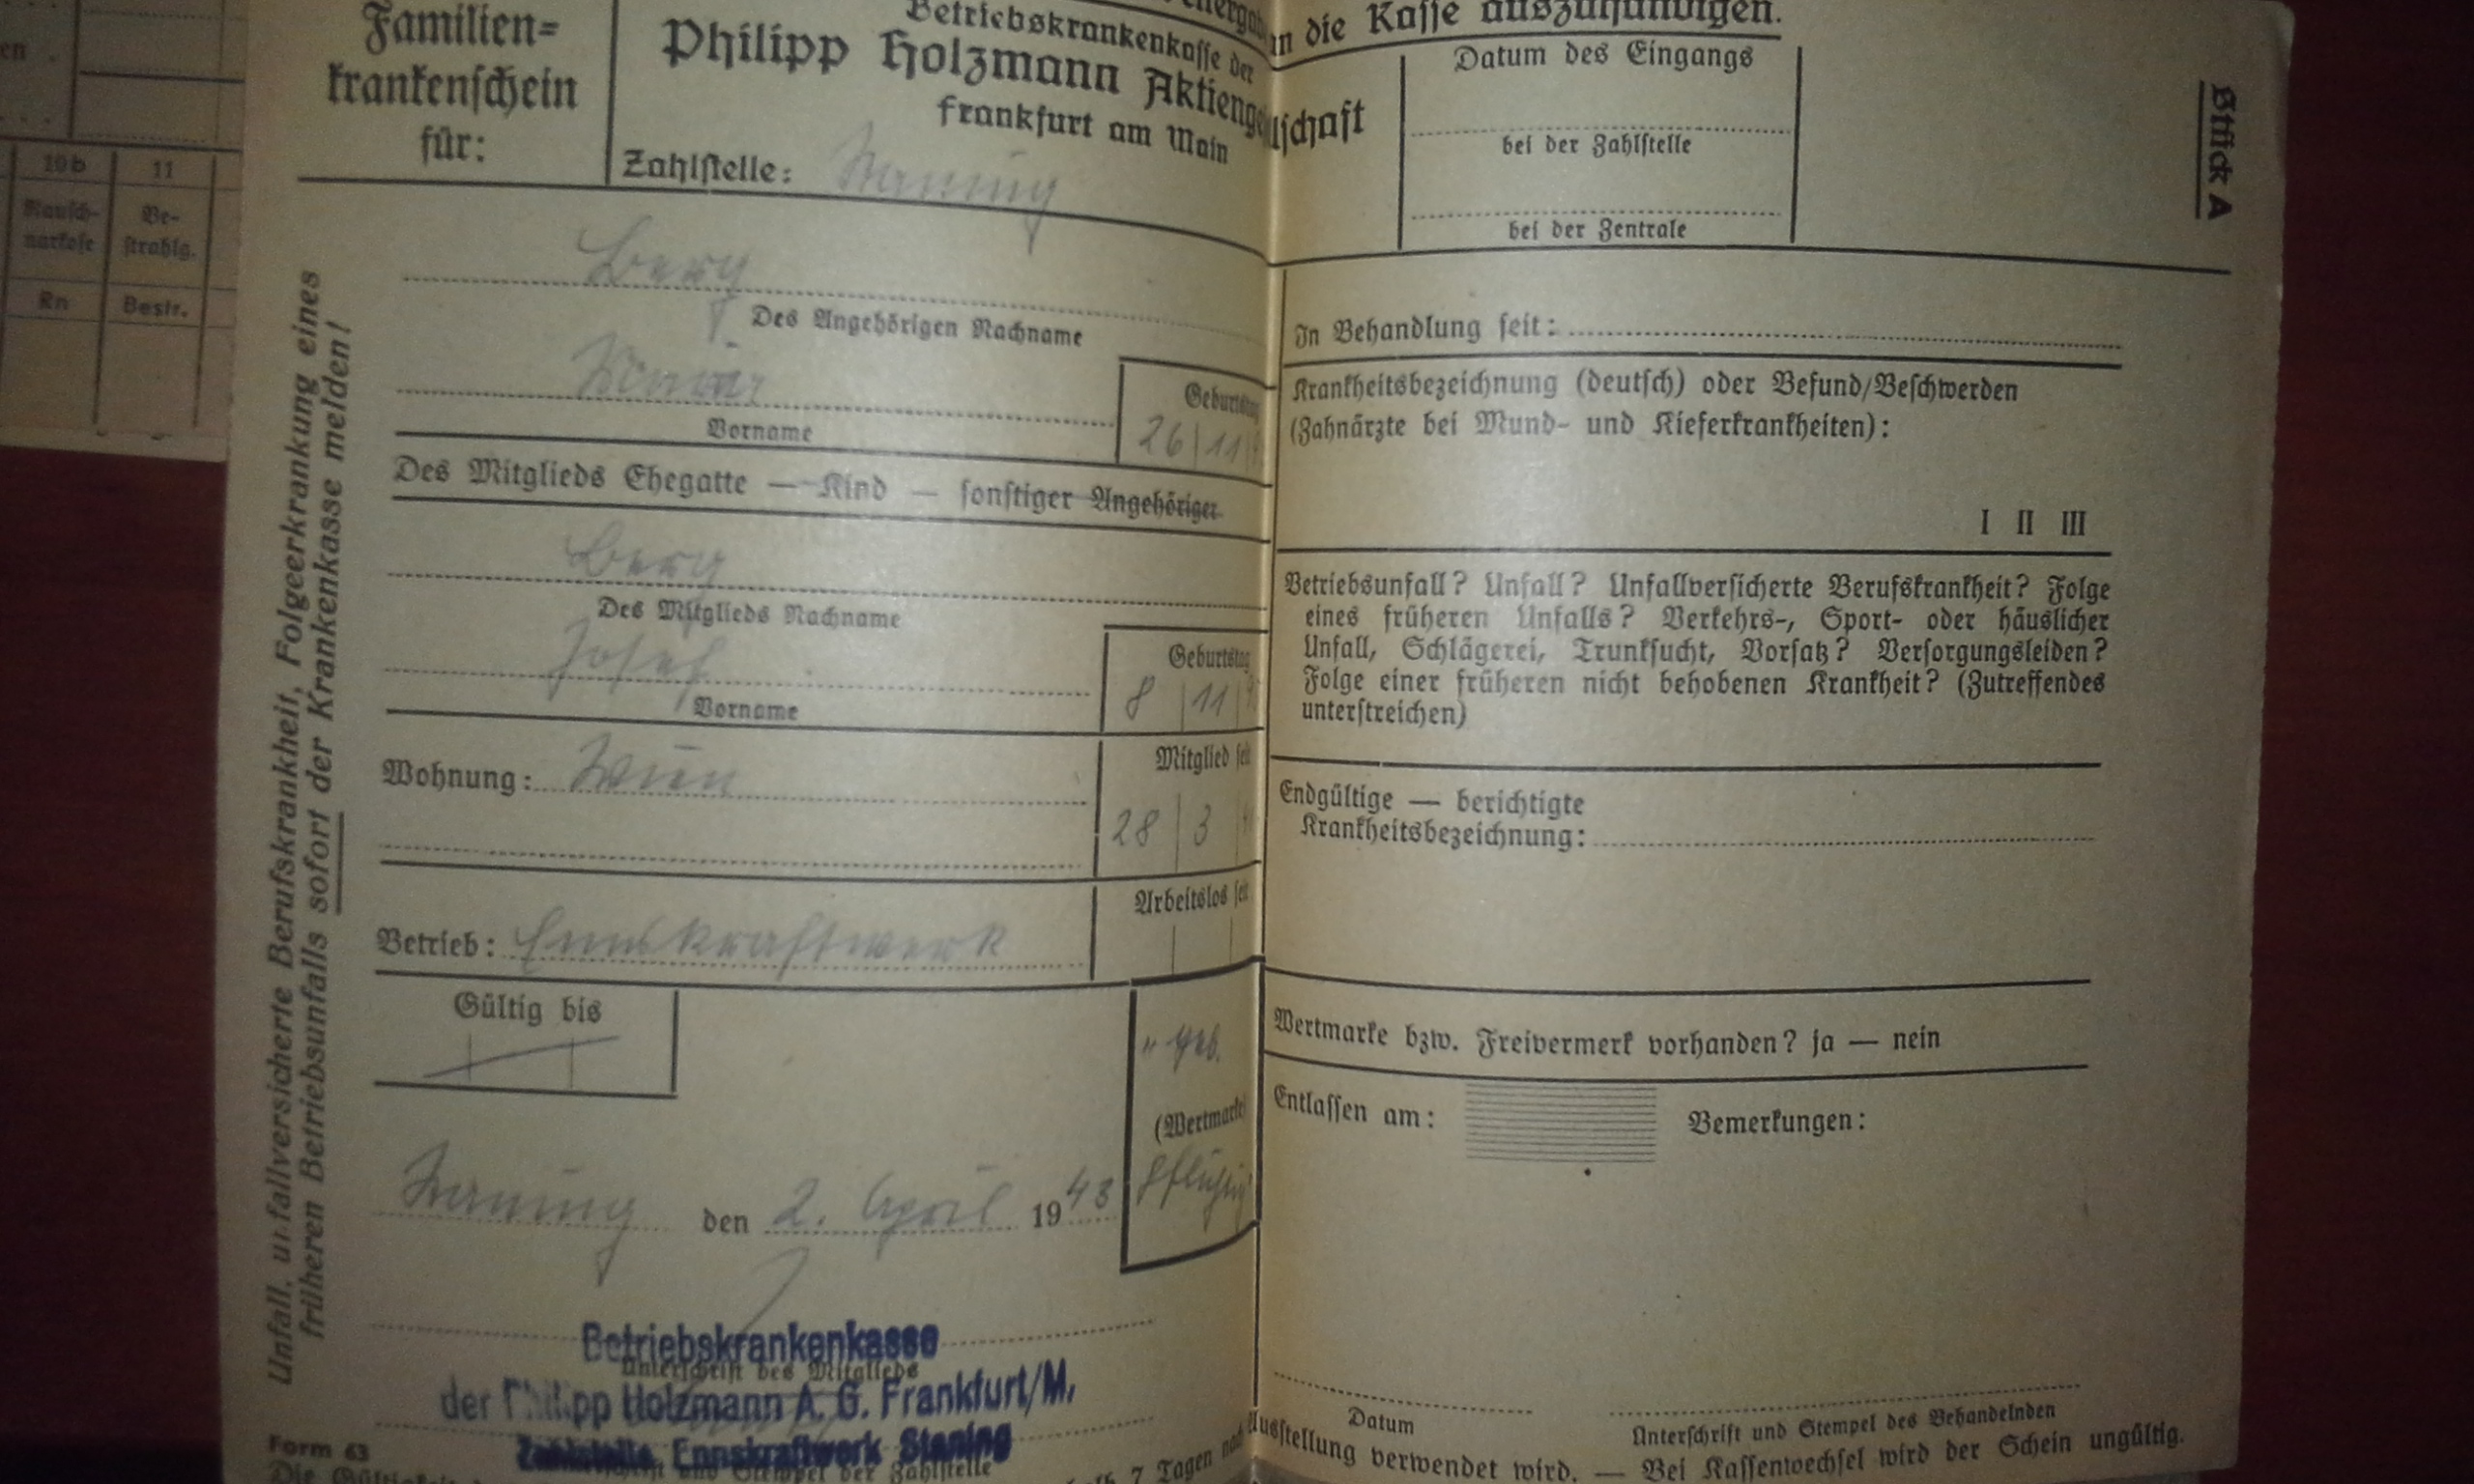 en
10b
11
Rausch-
narkose
Be-
strahlg.
Rn
Bestr.
Familien-
krankenschein
für:
Betriebskrankenkasse der
Philipp Holzmann Aktienge
lschaft
Frankfurt am Main
Zahlstelle: Staning
Berg
Des Angehörigen Nachname
Vorname
Geburtstag
26 11
Des Mitglieds Ehegatte — Kind — sonstiger Angehöriger
Berg
Des Mitglieds Nachname
Josef
Vorname
Geburtstag
8 11
Wohnung: Wien
Mitglied seit
28 3
Betrieb: Ennskraftwerk
Arbeitslos seit
Gültig bis
geb.
(Wertmarke
pflichtig
Staning den 2. April 1943
Unterschrift des Mitglieds
Betriebskrankenkasse
der Philipp Holzmann A. G. Frankfurt/M.
Zahlstelle, Ennskraftwerk Staning
und Stempel der Zahlstelle
Form 63
Unfall, unfallversicherte Berufskrankheit, Folgeerkrankung eines
früheren Betriebsunfalls sofort der Krankenkasse melden!
in die Kasse auszuhändigen.
Datum des Eingangs
bei der Zahlstelle
bei der Zentrale
Stück A
In Behandlung seit:
Krankheitsbezeichnung (deutsch) oder Befund/Beschwerden
(Zahnärzte bei Mund- und Kieferkrankheiten):
I II III
Betriebsunfall? Unfall? Unfallversicherte Berufskrankheit? Folge
eines früheren Unfalls? Verkehrs-, Sport- oder häuslicher
Unfall, Schlägerei, Trunksucht, Vorsatz? Versorgungsleiden?
Folge einer früheren nicht behobenen Krankheit? (Zutreffendes
unterstreichen)
Endgültige — berichtigte
Krankheitsbezeichnung:
Wertmarke bzw. Freivermerk vorhanden? ja — nein
Entlassen am:
Bemerkungen:
Datum
Unterschrift und Stempel des Behandelnden
7 Tagen nach Ausstellung verwendet wird. — Bei Kassenwechsel wird der Schein ungültig.